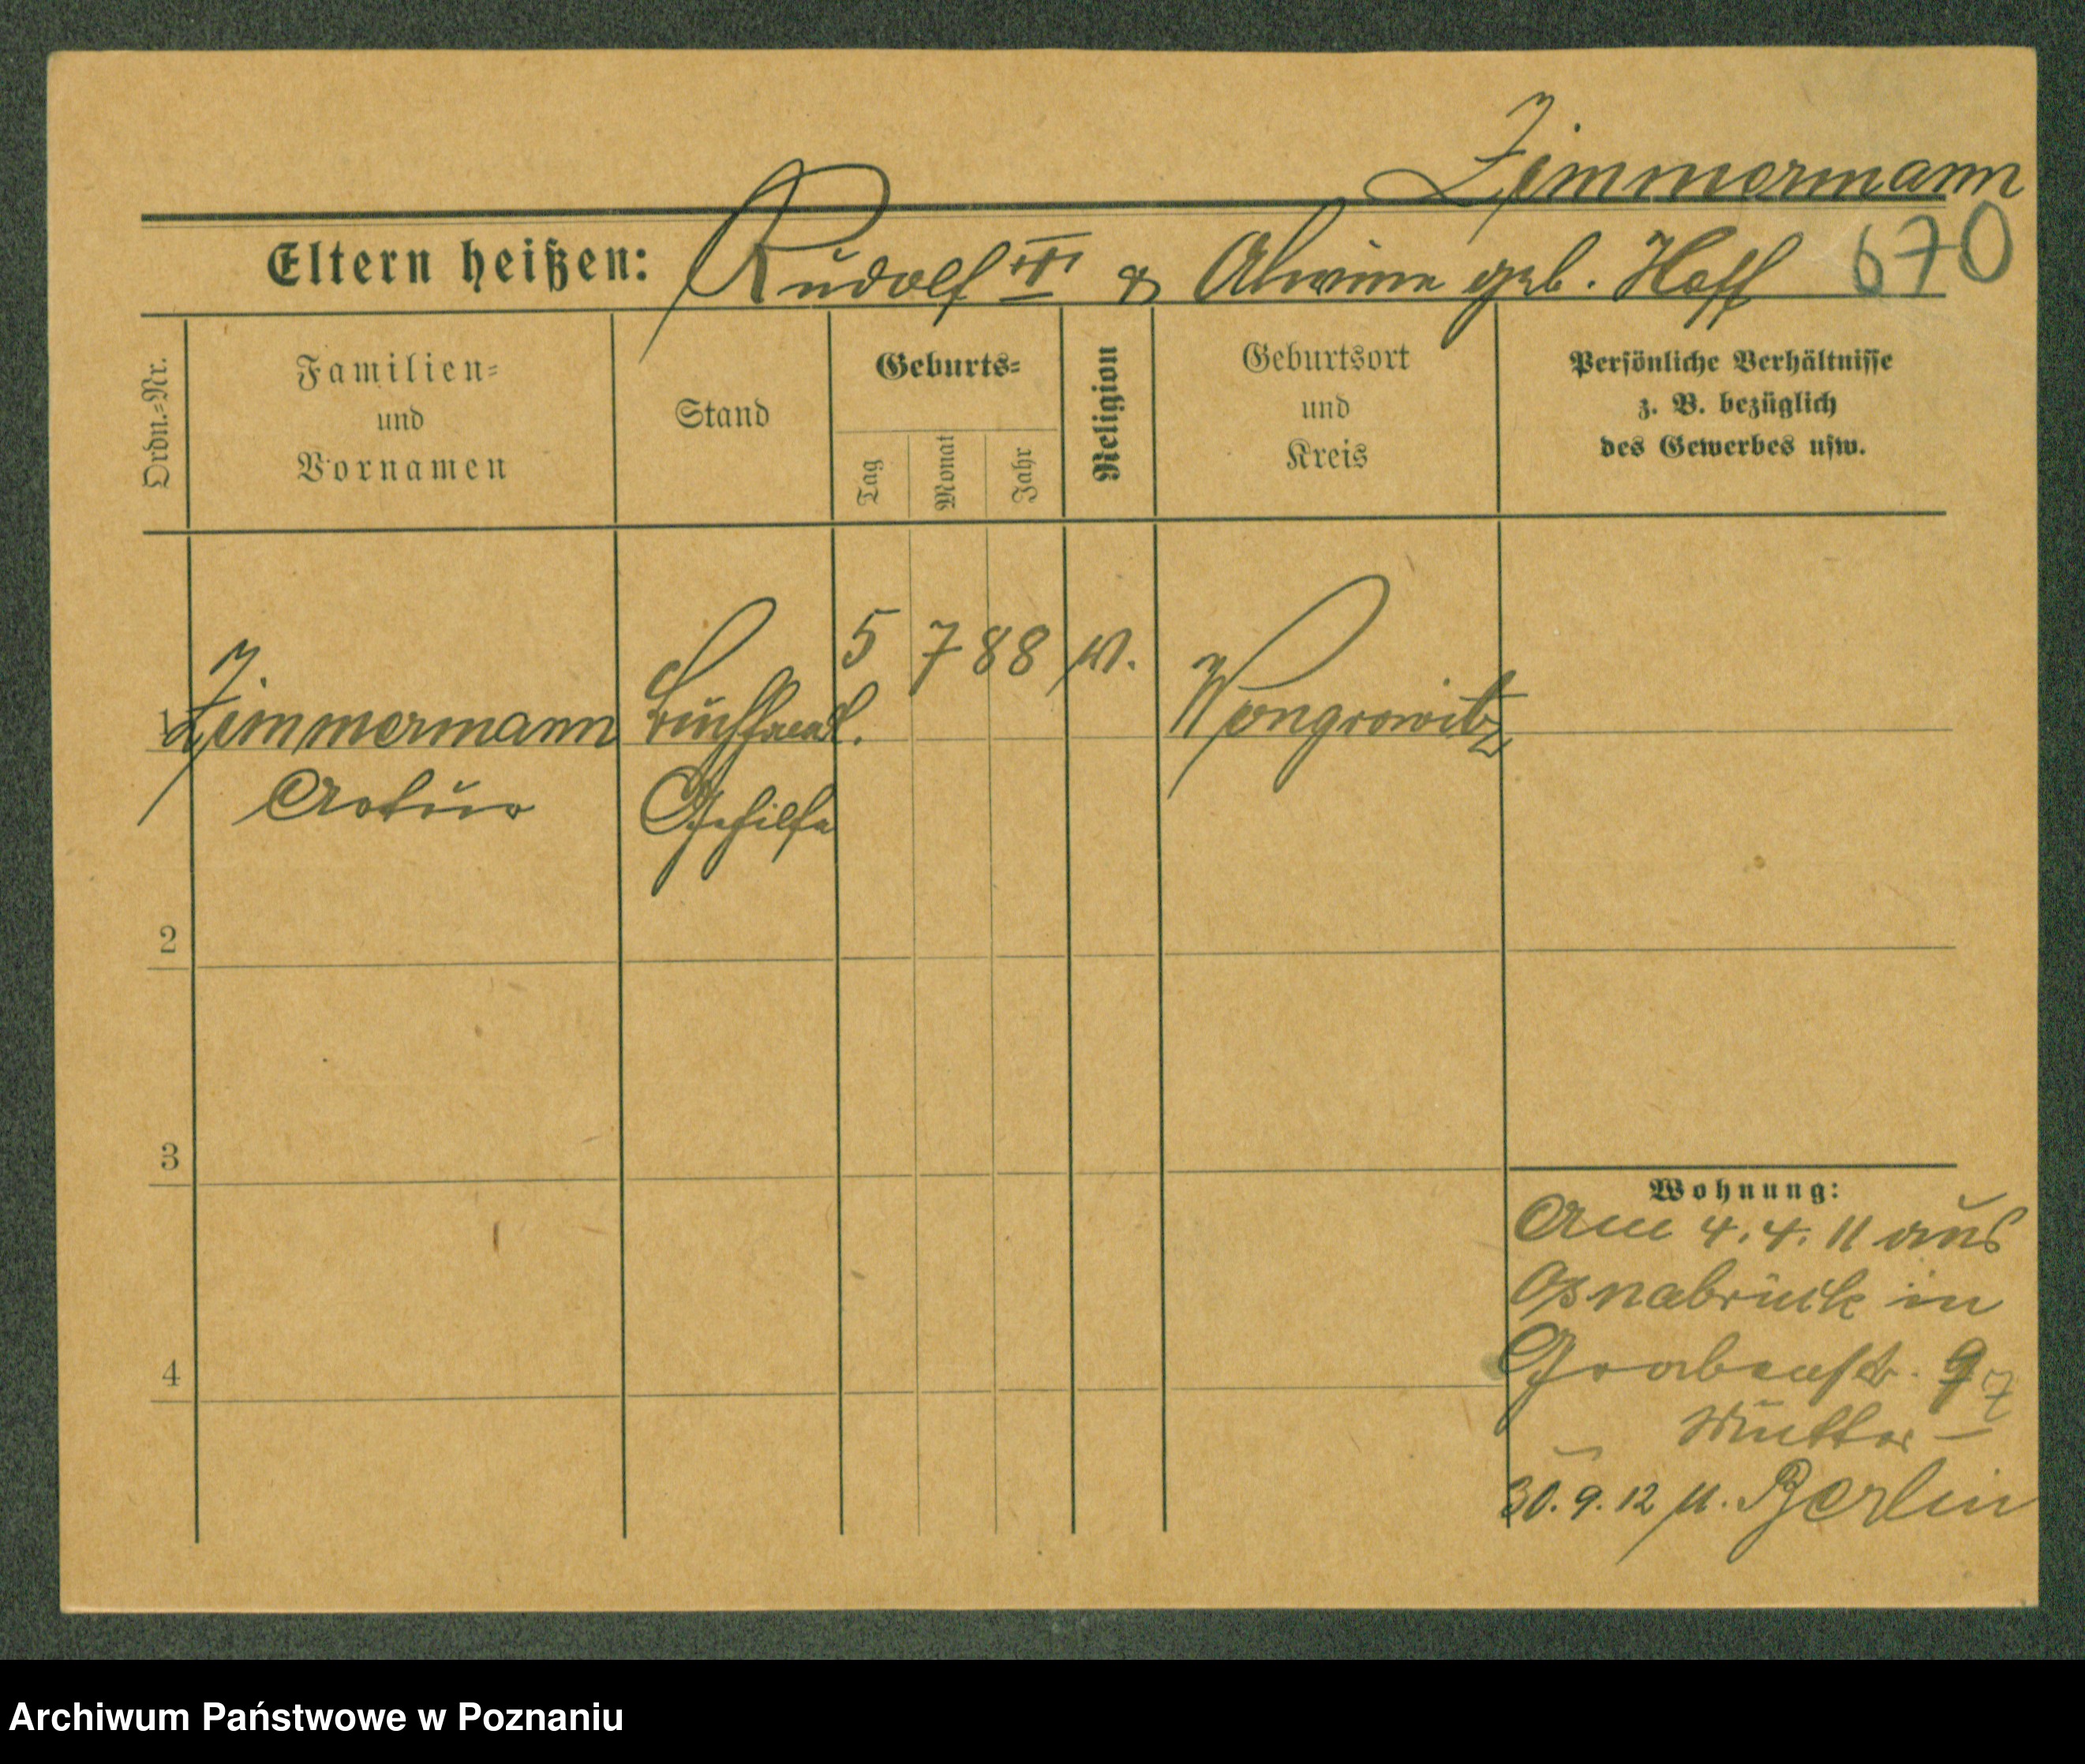 Zimmermann
Eltern heißen: Rudolf & Alwine geb. Hoff 670
Ordn.-Nr.
Familien-
und
Vornamen
Stand
Geburts-
Tag
Monat
Jahr
Religion
Geburtsort
und
Kreis
Persönliche Verhältnisse
z. B. bezüglich
des Gewerbes usw.
1 Zimmermann Buchhandl. 5 7 88 Wongrowitz
Artur Gehilfe
2
3
4
Wohnung:
Am 4. 4. 11 aus
Osnabrück in
Grabenstr. 9
Mutter
30. 9. 12 n. Berlin
Archiwum Państwowe w Poznaniu